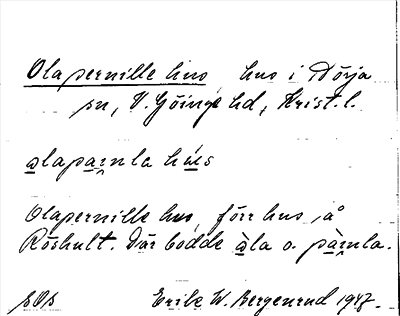 Olapernille hus, hus i Nörja
sn, V. Göinge hd, Krist. l.
alaparnla hús
Olapernille hus, förr hus å
Röshult. Där bodde àla o. pàrnla.
sOs Erik W. Bergenrud 1947.